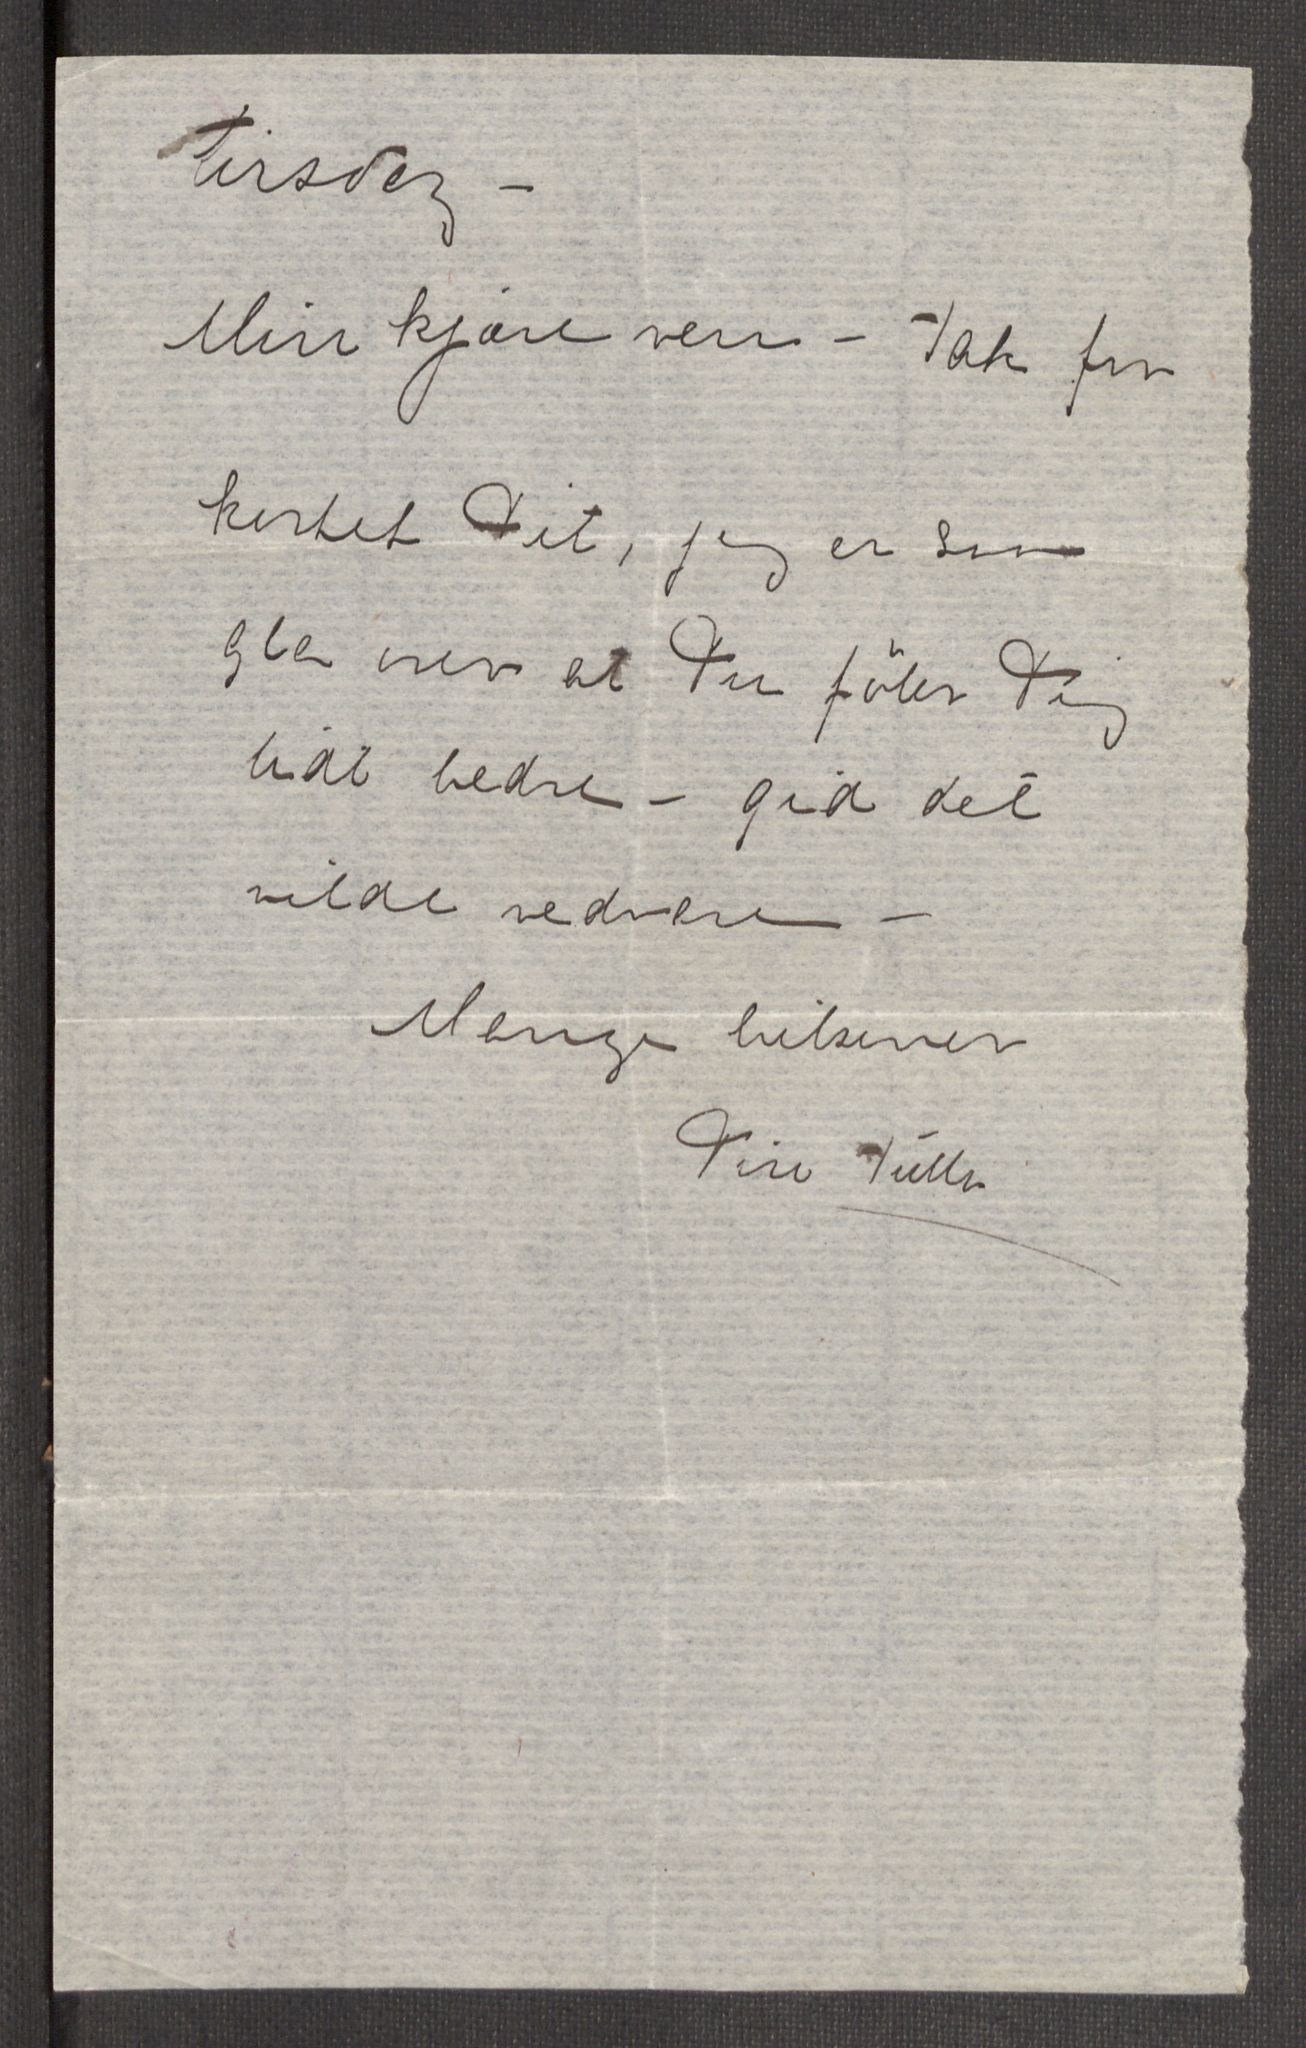 Tirsdag –
Min kjære ven – Tak for
kortet Dit, jeg er saa
gla over at Du föler Dig
lidt bedre – gid det
vilde vedvare –
Mange hilsener
Din Tulla